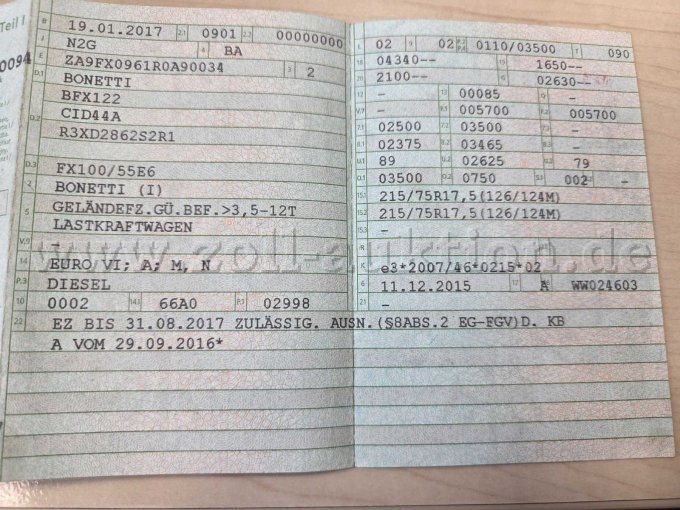 Teil I
0094
B 19.01.2017 2.1 0901 2.2 00000000
J N2G 4 BA
E ZA9FX0961R0A90034 3 2
D.1 BONETTI
BFX122
D.2 CID44A
R3XD2862S2R1
D.3 FX100/55E6
2 BONETTI (I)
5 GELÄNDEFZ.GÜ.BEF.>3,5-12T
LASTKRAFTWAGEN
V.9 -
14 EURO VI; A; M, N
P.3 DIESEL
10 0002 14.1 66A0 P.1 02998
22 EZ BIS 31.08.2017 ZULÄSSIG. AUSN.(§8ABS.2 EG-FGV)D. KB
A VOM 29.09.2016*
L 02 9 02 P.2 P.4 0110/03500 T 090
18 04340-- 19 1650--
20 2100-- G 02630--
12 - 13 00085 Q -
V.7 - F.1 005700 F.2 005700
7.1 02500 7.2 03500 7.3 -
8.1 02375 8.2 03465 8.3 -
U.1 89 U.2 02625 U.3 79
O.1 03500 O.2 0750 S.1 002 S.2 -
15.1 215/75R17,5(126/124M)
15.2 215/75R17,5(126/124M)
15.3 -
R
K e3*2007/46*0215*02
6 11.12.2015 17 A 16 WW024603
21 -
www.zoll-auktion.de